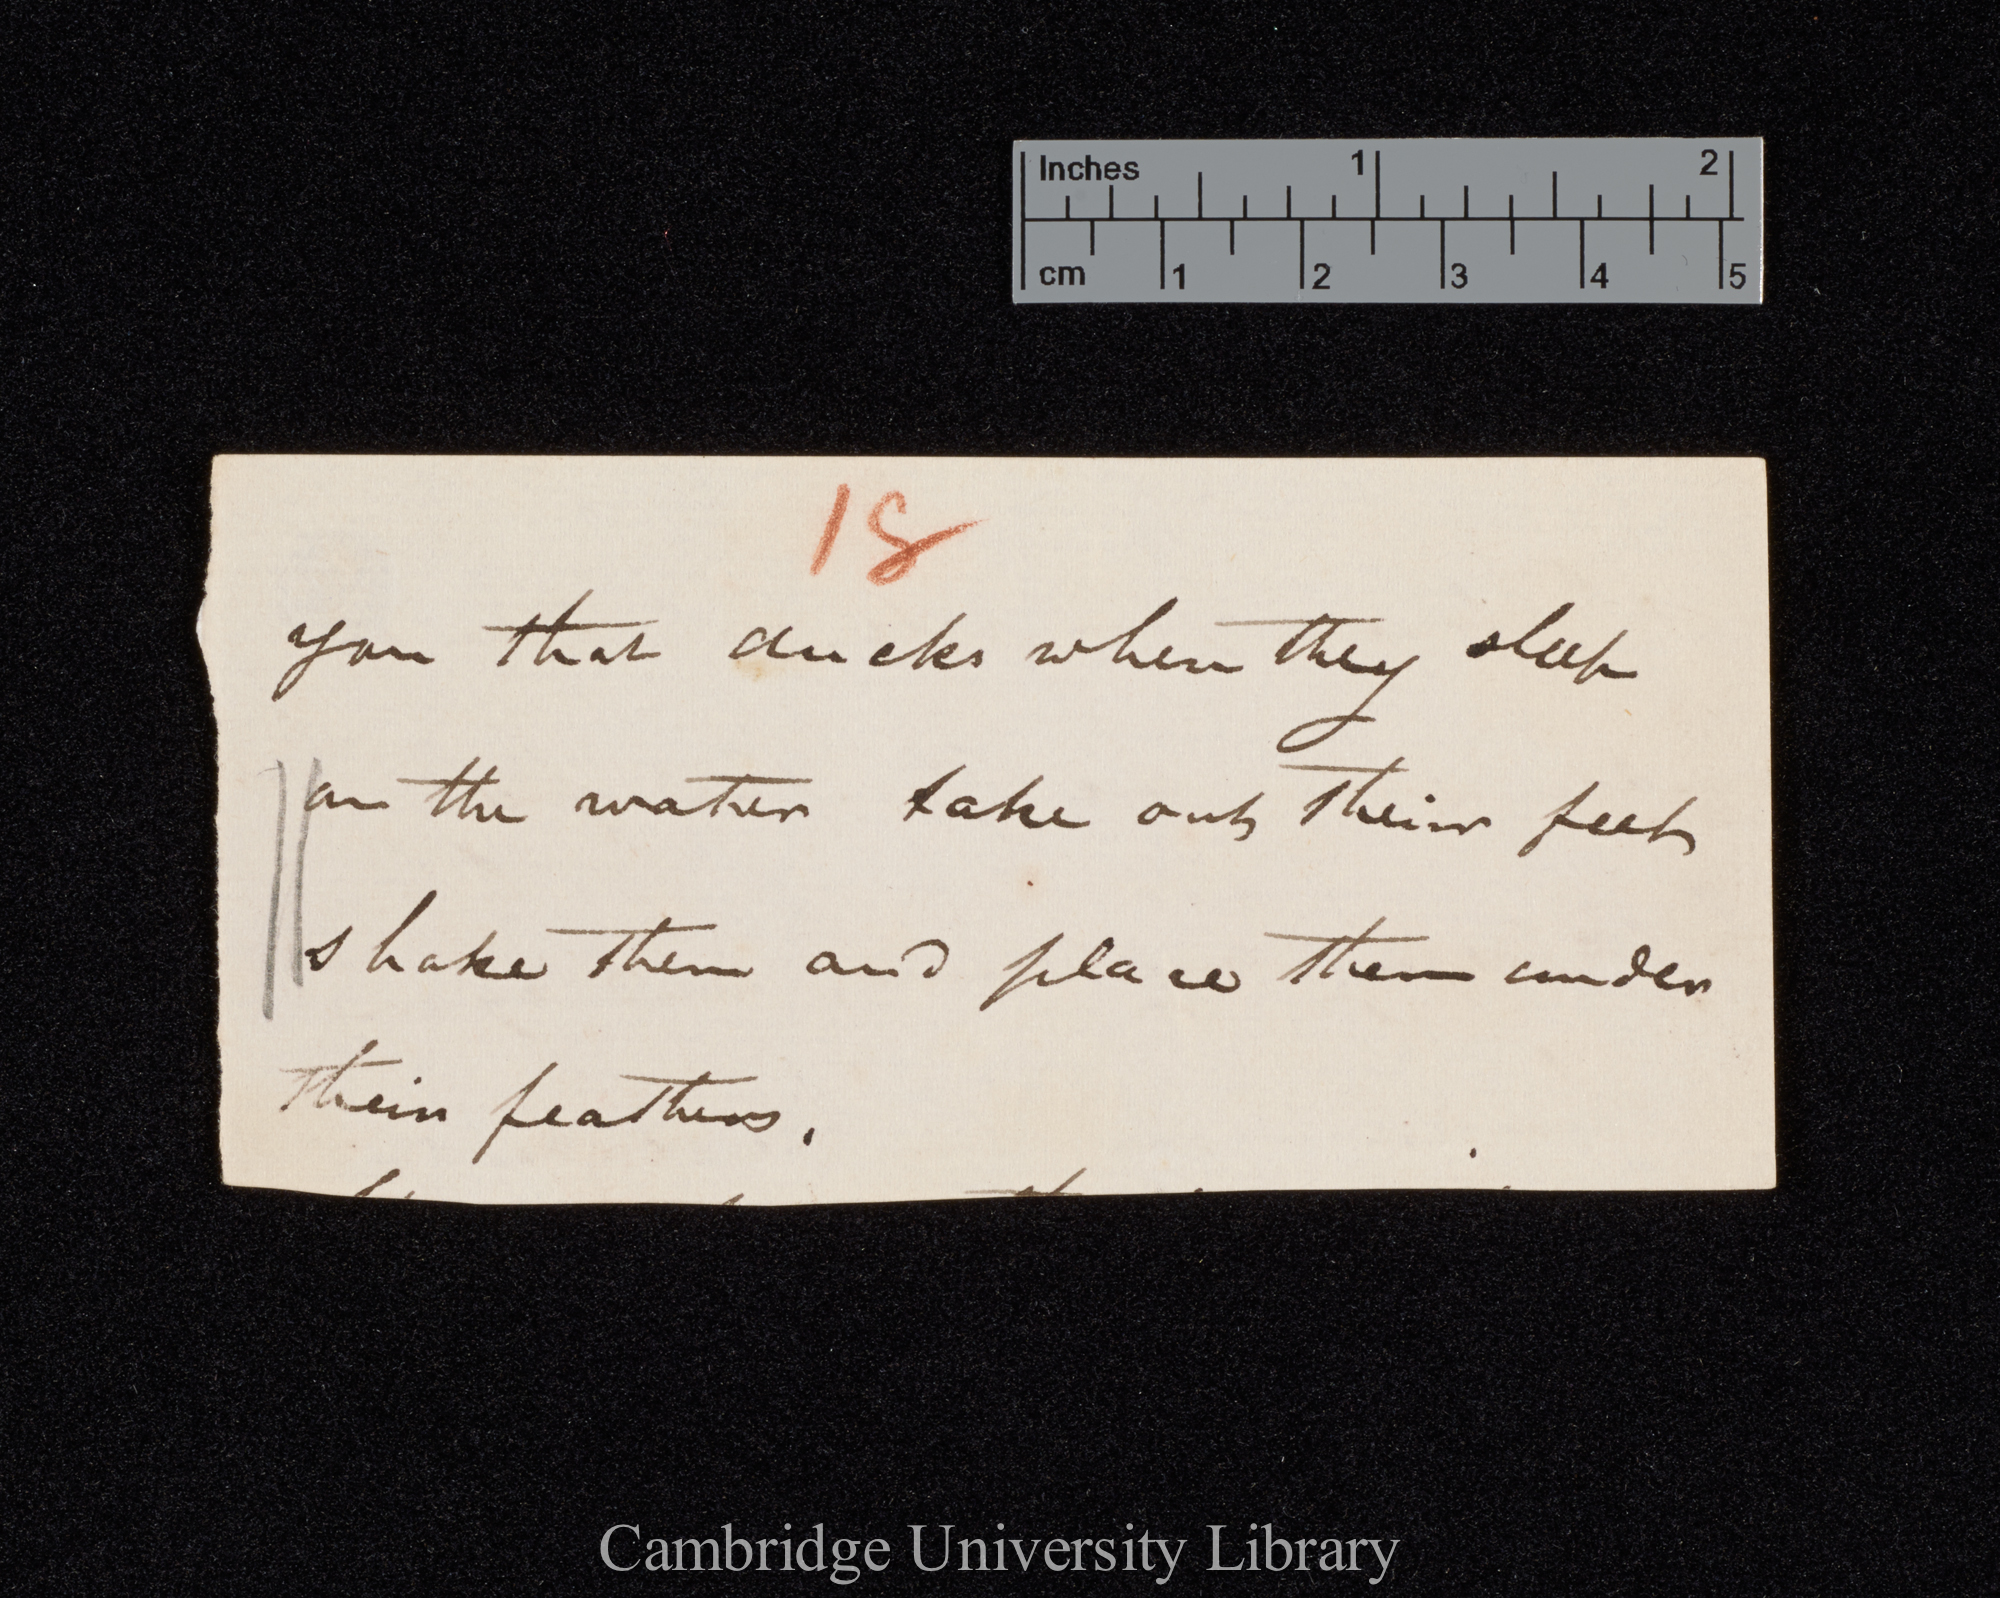 Inches 1 2
cm 1 2 3 4 5
18
you that ducks when they sleep
on the water take out their feet
shake them and place them under
their feathers.
Cambridge University Library